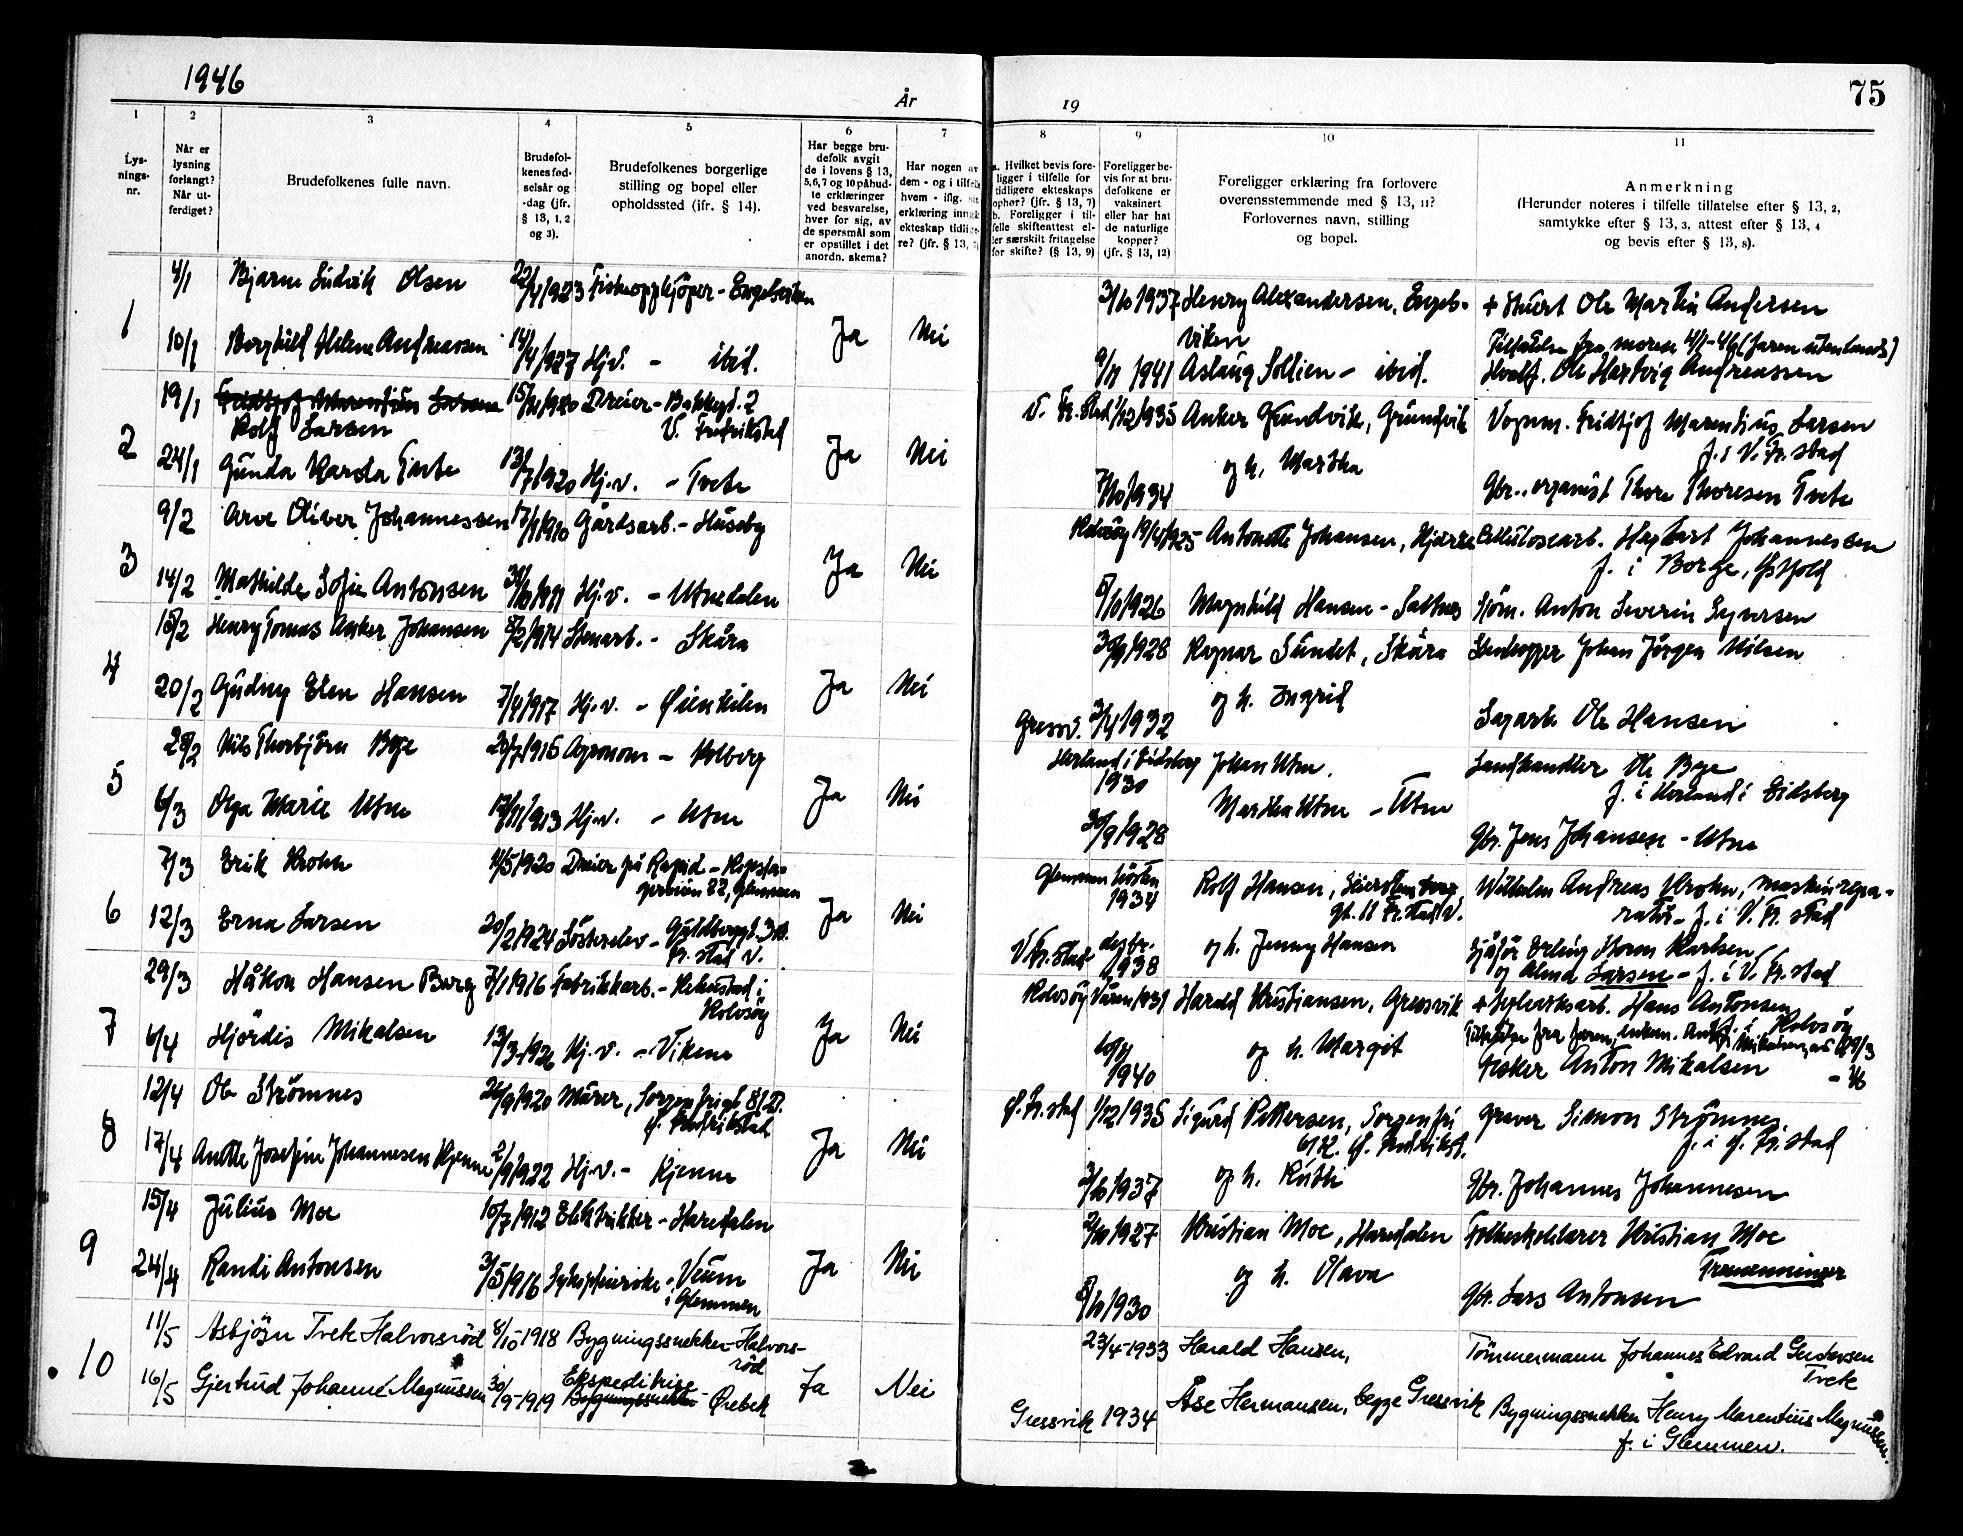 1946
År
19
75
1
2
3
4
5
6
7
8
9
10
11
Lys-
nings-
nr.
Når er
lysning
forlangt?
Når ut-
ferdiget?
Brudefolkenes fulle navn.
Brudefol-
kenes fød-
selsår og
-dag (jfr.
§ 13, 1, 2
og 3).
Brudefolkenes borgerlige
stilling og bopel eller
opholdssted (ifr. § 14).
Har begge bru-
defolk avgit
de i lovens § 13,
5,6,7 og 10 påhud-
te erklæringer
ved besvarelse,
hver for sig, av
de spørsmål som
er opstillet i det
anordn. skema?
Har nogen av
dem - og i tilfelle
hvem - iflg. sin
erklæring inngåt
ekteskap tidlige-
re? (jfr. § 13, 7)
a. Hvilket bevis fore-
ligger i tilfelle for
tidligere ekteskaps
ophør? (jfr. § 13, 7)
b. Foreligger i til-
felle skifteattest el-
ler særskilt fritagelse
for skifte? (§ 13, 9)
Foreligger be-
vis for at bru-
defolkene er
vaksinert
eller har hat
de naturlige
kopper?
(jfr. § 13, 12)
Foreligger erklæring fra forlovere
overensstemmende med § 13, 11?
Forlovernes navn, stilling
og bopel.
Anmerkning
(Herunder noteres i tilfelle tillatelse efter § 13, 2,
samtykke efter § 13, 3, attest efter § 13, 4
og bevis efter § 13, 8).
1
4/1 Bjarne Ludvik Olsen 22/4 1923 Fiskeoppkjöper - Engelsviken
3/10 1937 Henry Alexandersen, Engels-
viken
+ Stuert Ole Martin Andersen
10/1 Borghild Helene Andreassen 14/4 1927 Hj.v. - ibid. Ja Nei
9/11 1941 Aslaug Soldien - ibid.
Hvalf. Ole Hartvig Andreassen
2
19/1 Fridtjof Marentius Larsen
Rolf Larsen
1920 Dreier - Bakkegt. 2
V. Fredrikstad
V. Fr.stad 1/12 1935 Anker Grundvik, Grundvik
Vognm. Fridtjof Marentius Larsen
f. i V. Fr.stad
24/1 Gunda Karda Tvete 13/7 1920 Hj.v. - Tvete Ja Nei
7/10 1934 og h. Martha
Gbr., organist Thore Thoresen Tvete
3
9/2 Arve Oliver Johannessen 17/1 1910 Gårdsarb. - Huseby
Rolvsøy 19/4 1925 Antonette Johansen, Hjærre
Cellulosearb. Hagbart Johannessen
f. i Borge, Østfold
14/2 Mathilde Sofie Antonsen 1911 Hj.v. - Utnedalen Ja Nei
8/10 1926 Magnhild Hansen - Saltnes
Sjöm. Anton Severin Syversen
4
15/2 Henry Tomas Anker Johansen 8/2 1914 Stenarb. - Skåra
30/9 1928 Ragnar Sundet, Skåra
Stenhogger Johan Jörgen Nilsen
20/2 Gudny Elen Hansen 7/4 1917 Hj.v. - Øienkilen Ja Nei
Gressv. 1932 og h. Ingrid
Sagarb. Ole Hansen
5
28/2 Nils Thorbjörn Bøe 1915 Agronom - Kolberg
Herland i Eidsberg
1930 Johan Utne.
Landhandler Ole Bøe
f. i Herland i Eidsberg
6/3 Olga Marie Utne 1913 Hj.v. - Utne Ja Nei
30/9 1928 Martha Utne - Utne
Gbr. Jens Johansen - Utne
6
7/3 Erik Krohn 11/5 1920 Dreier på Rapid - Ropsta-
gerveien 82, Glemmen
Glemmen hösten
1934 Rolf Hansen, Seierstens torg
gt. 11 Fr.stad V.
Wilhelm Andreas Krohn, maskinrepa-
ratör - f. i V. Fr.stad
12/3 Erna Larsen 20/2 1924 Söster elev - Guldbergsgt. 3
Fr.stad V. Ja Nei
V. Fr.stad desbr.
1938 og h. Jenny Hansen
Sjåför Erling Storm Karlsen
og Alma Larsen - f. i V. Fr.stad
7
29/3 Håkon Hansen Borg 7/1 1916 Fabrikkarb. - Rekustad i
Rolvsöy
Rolvsöy Våren 1931 Harald Kristiansen, Gressvik
Hans Antonsen
f. i Rolvsøy
6/4 Hjördis Mikalsen 13/3 1926 Hj.v. - Vikene Ja Nei
10/11 1940 og h. Margot
Fisker Anton Mikalsen
8
12/4 Ole Strømnes 1920 Murer, Sorgenfrigt. 81 D.
Ø. Fredrikstad
Ø. Fr.stad 1/12 1935 Sigurd Pettersen, Sorgenfri
61 K. Ø. Fredrikst.
Graver Simon Strømnes,
f. i Ø. Fr.stad
17/4 Anette Josefine Johannesen Kjenne 2/9 1922 Hj.v. - Kjenne Ja Nei
3/10 1937 og h. Ruth
Gbr. Johannes Johannesen
9
15/4 Julius Moe 10/7 1912 Elektriker - Haredalen
2/10 1927 Kristian Moe, Haredalen
Folkeskolelærer Kristian Moe
Tremenninger
24/4 Randi Antonsen 3/5 1916 Sykepleierske - Veum
i Glemmen Ja Nei
8/10 1930 og h. Olava
Gbr. Lars Antonsen
10
11/5 Asbjörn Trek Halvorsröd 8/10 1918 Bygningssnekker - Halvors-
röd
23/4 - 1933 Harald Hansen,
Tömmermann Johannes Edvard Gustavsen
Trek
16/5 Gjertrud Johanne Magnussen 30/9 - 1919 Ekspeditrise
Bygningssnekker - Ørebek Ja Nei
Gressvik 1934 Åse Hermansen, begge Gressvik
Bygningssnekker Henry Marentius Magnussen.
f. i Glemmen.